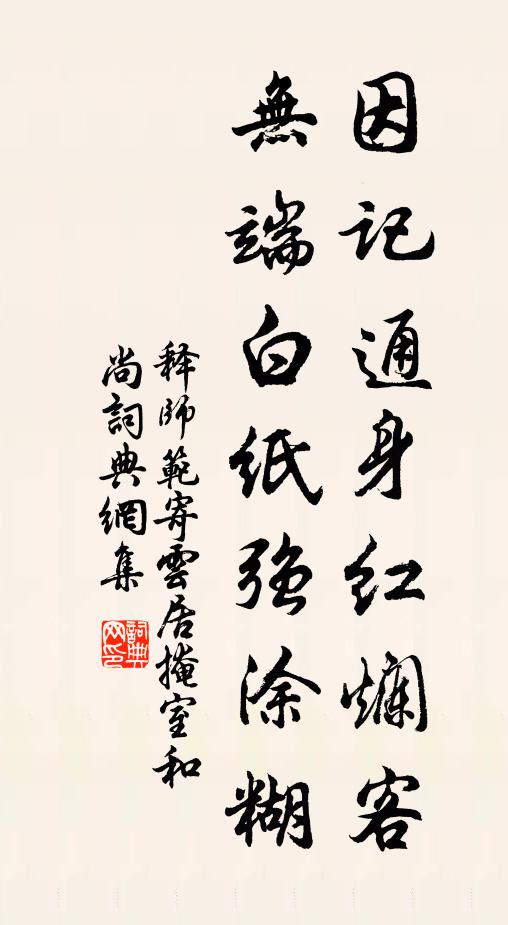 因记通身红爛客
無端白纸强涂糊
释師範寄雲居掩室和
尚詞典網集
詞典
网印